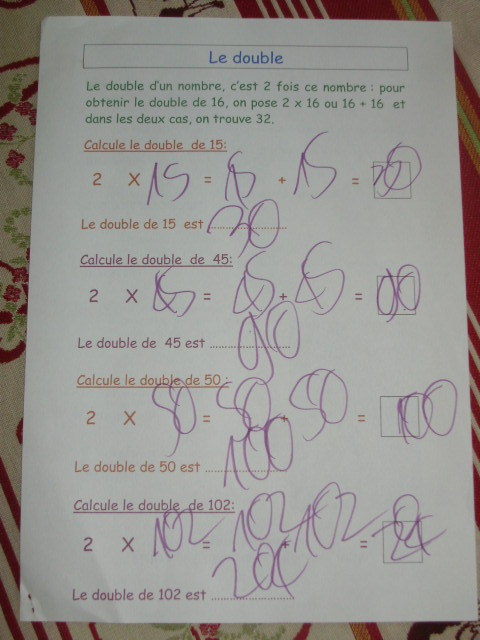 Le double
Le double d'un nombre, c'est 2 fois ce nombre : pour
obtenir le double de 16, on pose 2 x 16 ou 16 + 16 et
dans les deux cas, on trouve 32.
Calcule le double de 15:
2 X 15 = 15 + 15 = 30
Le double de 15 est 30
Calcule le double de 45:
2 X 45 = 45 + 45 = 90
Le double de 45 est 90
Calcule le double de 50 :
2 X 50 = 50 + 50 = 100
Le double de 50 est 100
Calcule le double de 102:
2 X 102 = 102 + 102 =
Le double de 102 est 204